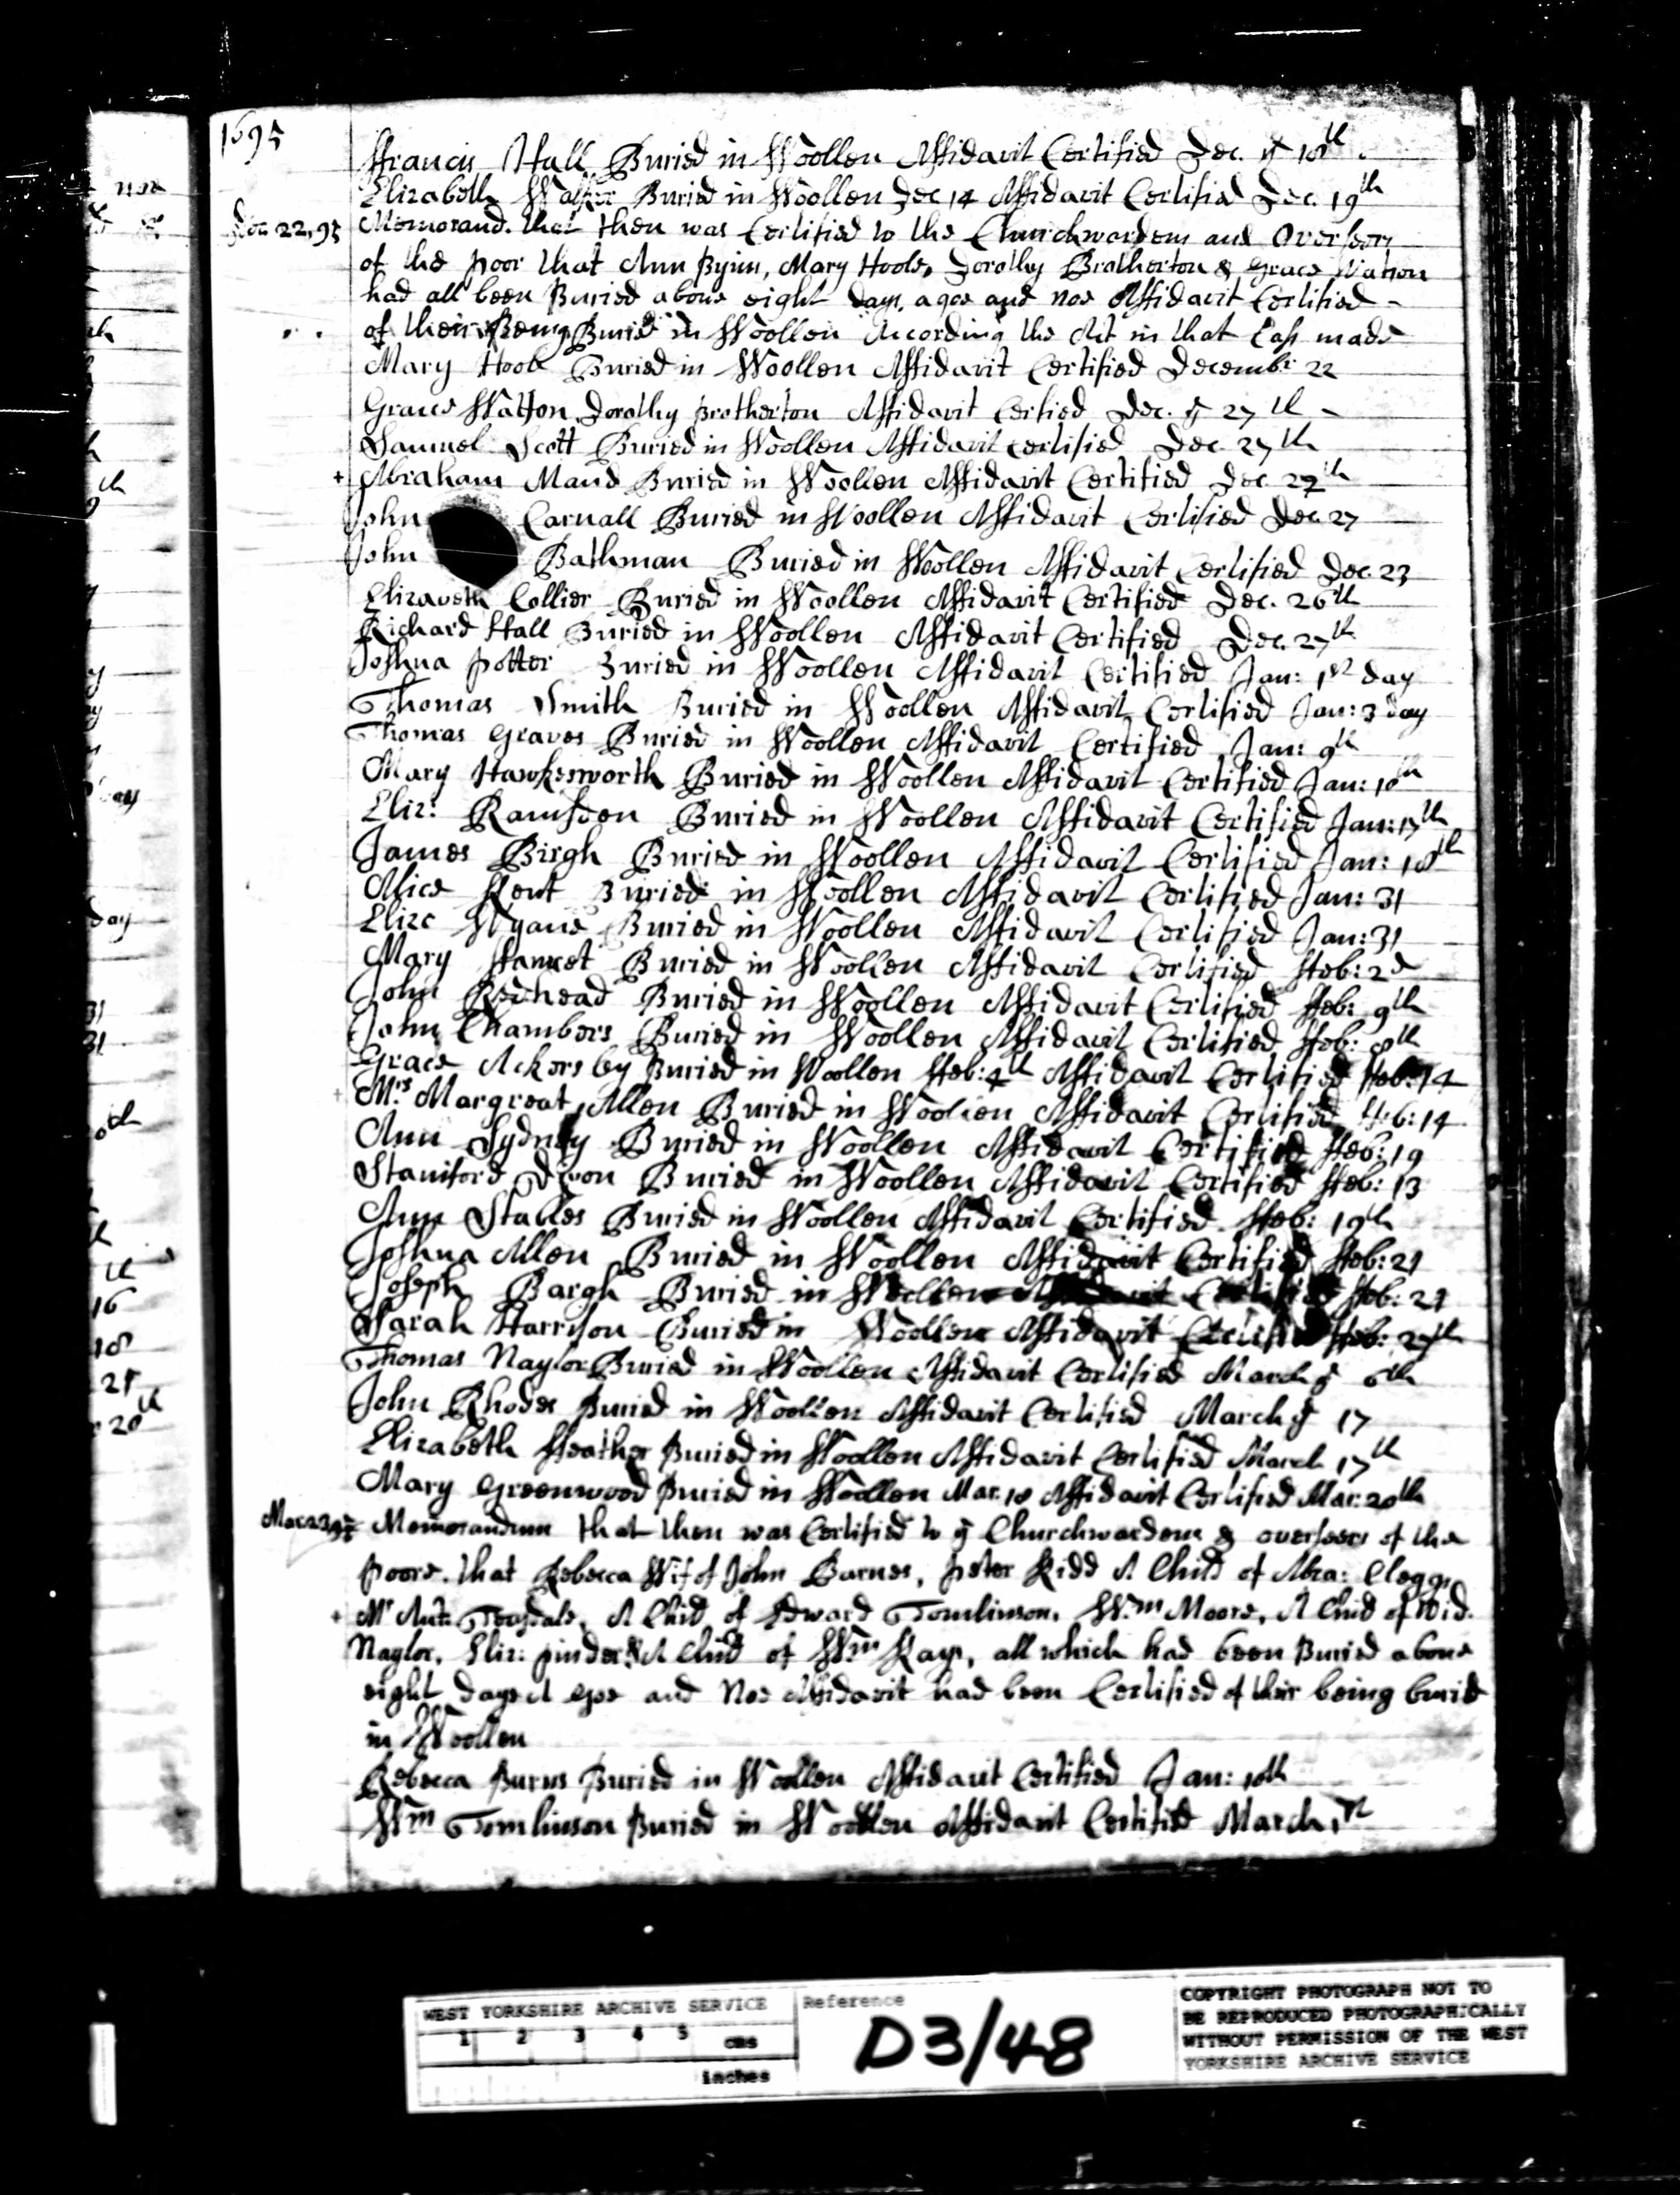 1695
ffrancis Hall Buried in Woollen Affidavit Certified Dec. ye 18th
Elizabeth Walker Buried in Woollen Dec 14 Affidavit Certified Dec. 19th
Dec 22, 95 Memorand. that then was Certified to the Churchwardens and Overseers
of the poor that Ann Bynns, Mary Hoole, Dorothy Brotherton & Grace Watson
had all been Buried above eight days agoe and noe Affidavit Certified
of their Being Buried in Woollen According the Act in that Case made
Mary Hoole Buried in Woollen Affidavit Certified Decembr 22
Grace Watson Dorothy Brotherton Affidavit Certied Dec. ye 27th
Samuel Scott Buried in Woollen Affidavit Certified Dec. 27th
+ Abraham Maud Buried in Woollen Affidavit Certified Dec. 27th
John Carnall Buried in Woollen Affidavit Certified Dec. 27
John Bathman Buried in Woollen Affidavit Certified Dec. 23
Elizabeth Collier Buried in Woollen Affidavit Certified Dec. 26th
Richard Hall Buried in Woollen Affidavit Certified Dec. 27th
Joshua potter Buried in Woollen Affidavit Certified Jan: 1st day
Thomas Smith Buried in Woollen Affidavit Certified Jan: 3 day
Thomas Graves Buried in Woollen Affidavit Certified Jan: 9th
Mary Hawkesworth Buried in Woollen Affidavit Certified Jan: 10th
Eliz: Ramsden Buried in Woollen Affidavit Certified Jan: 17th
James Birgh Buried in Woollen Affidavit Certified Jan: 18th
Alice Kent Buried in Woollen Affidavit Certified Jan: 31
Buried in Woollen Affidavit Certified Jan: 31
Mary Buried in Woollen Affidavit Certified ffeb: 2d
John Redhead Buried in Woollen Affidavit Certified ffeb: 9th
John Chambers Buried in Woollen Affidavit Certified ffeb: 8th
Grace Ackersby Buried in Woollen ffeb: 4th Affidavit Certified ffeb: 14
+ Mrs Margreat Allen Buried in Woollen Affidavit Certified ffeb: 14
Ann Sydney Buried in Woollen Affidavit Certified ffeb: 19
Staniford Buried in Woollen Affidavit Certified ffeb: 13
Ann Stables Buried in Woollen Affidavit Certified ffeb: 19th
Joshua Allen Buried in Woollen Affidavit Certified ffeb: 21
Joseph Bargh Buried in Woollen Affidavit Certified ffeb: 21
Sarah Harrison Buried in Woollen Affidavit Certified ffeb: 27th
Thomas Naylor Buried in Woollen Affidavit Certified March ye 6th
John Rhodes Buried in Woollen Affidavit Certified March ye 17
Elizabeth Heather Buried in Woollen Affidavit Certified March 17th
Mary Greenwood Buried in Woollen Mar. 18 Affidavit Certified Mar: 20th
Memorandum that then was Certified to ye Churchwardens & overseers of the
poore. that Rebecca Wif of John Barnes, peter Kidd A Child of Abra: Clegg,
+ Mr Ant: Teasdale, A Child of Edward Tomlinson, Wm Moore, A Child of Wid.
Naylor, Eliz: pinder & A Child of Wm Kaye, all which had been Buried above
eight dayes Agoe and Noe Affidavit had been Certified of their being buried
in Woollen
Rebecca Burns Buried in Woollen Affidavit Certified Jan: 10th
Wm Tomlinson Buried in Woollen Affidavit Certified March 1st
WEST YORKSHIRE ARCHIVE SERVICE
1 2 3 4 5 cms
inches
Reference
D3/48
COPYRIGHT PHOTOGRAPH NOT TO
BE REPRODUCED PHOTOGRAPHICALLY
WITHOUT PERMISSION OF THE WEST
YORKSHIRE ARCHIVE SERVICE